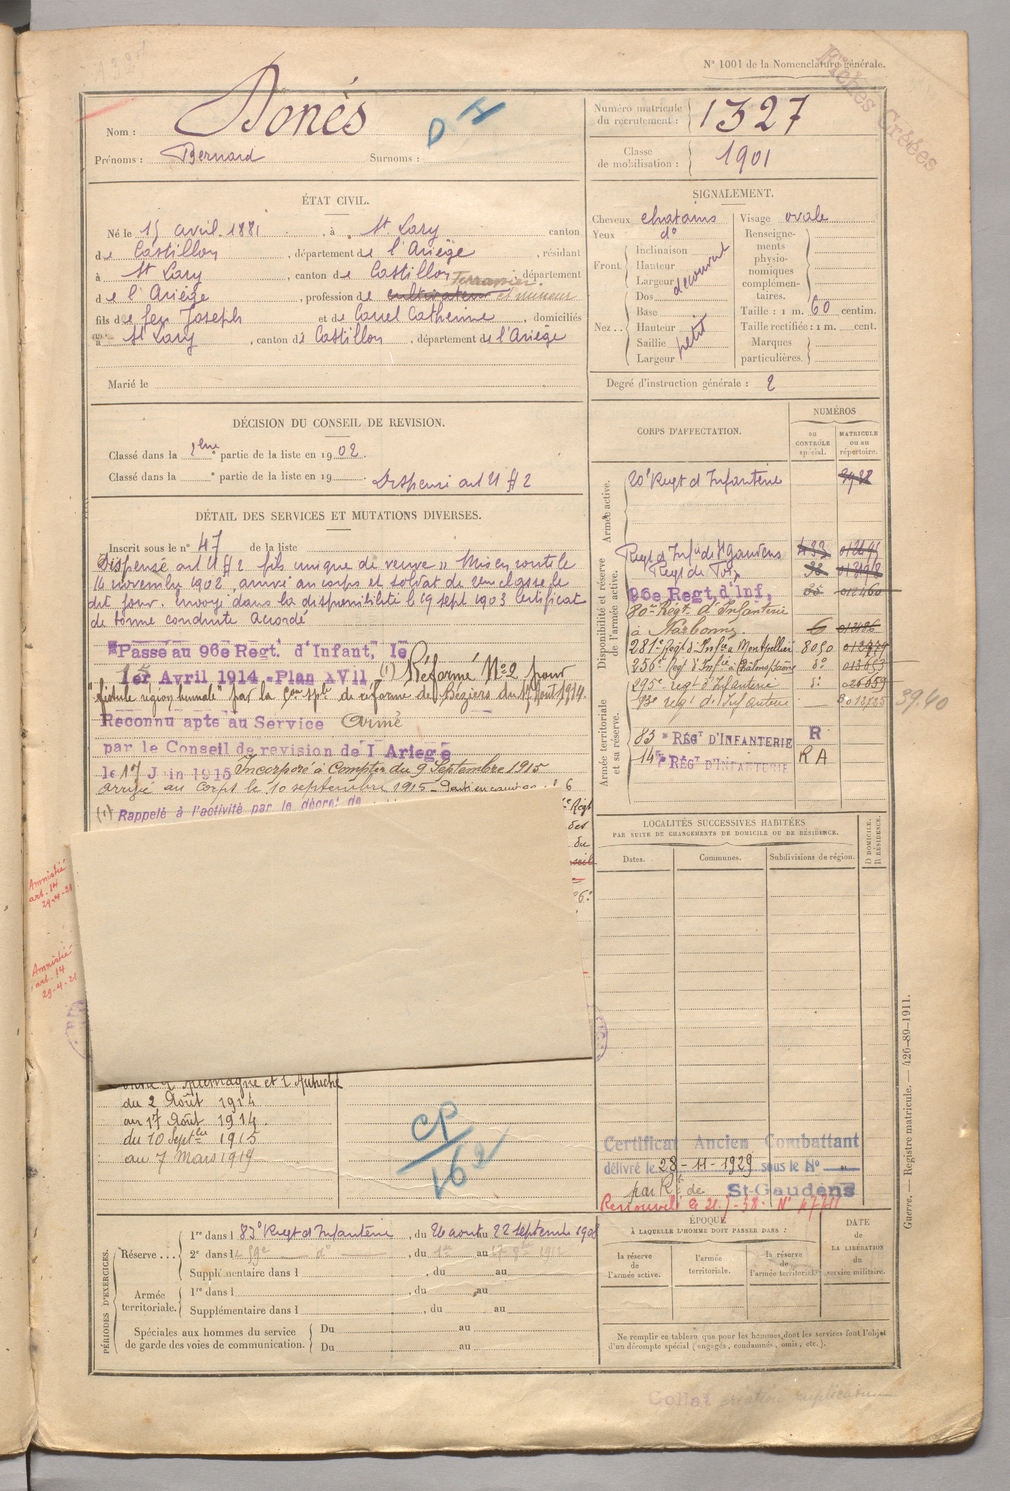 N° 1001 de la Nomenclature générale.
Fiches Créées
Nom : Donés
D I
Prénoms : Bernard Surnoms :
Numéro matricule du recrutement : 1327
Classe de mobilisation : 1901
ÉTAT CIVIL.
Né le 15 avril 1881, à St Lary canton
de Castillon, département de l'Ariège, résidant
à St Lary, canton de Castillon, département
Terrassier.
de l'Ariège, profession de cultivateur et mineur
fils de feu Joseph et de Catherine, domiciliés
à St Lary, canton de Castillon, département de l'Ariège
Marié le
SIGNALEMENT.
Cheveux chatains
Yeux d°
Front
Inclinaison
Hauteur
Largeur
découvert
Nez
Dos
Base
Hauteur
Saillie
Largeur
petit
Visage ovale
Renseignements physionomiques complémentaires.
Taille : 1 m. 60 centim.
Taille rectifiée : 1 m. cent.
Marques particulières.
Degré d'instruction générale : 2
DÉCISION DU CONSEIL DE REVISION.
Classé dans la 2eme partie de la liste en 1902.
Classé dans la e partie de la liste en 19
Dispensé art 21 § 2
DÉTAIL DES SERVICES ET MUTATIONS DIVERSES.
Inscrit sous le n° 47 de la liste
Dispensé art 21 § 2 fils unique de veuve " Mis en route le
16 novembre 1902, arrivé au corps et soldat de 2eme classe le
dit jour. Envoyé dans la disponibilité le 19 sept 1903 Certificat
de bonne conduite accordé
Passe au 96e Regt. d'Infant, le
1er Avril 1914 - Plan XVII
(1) Réformé N°2 pour
par la Con sple de réforme de Béziers du 17 Aout 1914.
Reconnu apte au Service Armé
par le Conseil de revision de l'Ariege
le 17 Juin 1915 Incorporé à compter du 9 Septembre 1915
arrivé au corps le 10 septembre 1915
(1) Rappelé à l'activité par le décret de
Amnistié
art. 14
29-4-21
Amnistié
art. 14
29-4-21
l'Allemagne et l'Autriche
du 2 Août 1914
au 17 Août 1914
du 10 Septbre 1915
au 7 Mars 1919
CP
162
CORPS D'AFFECTATION.
NUMÉROS
au CONTRÔLE spécial.
MATRICULE ou au répertoire.
Armée active.
20e Regt d'Infanterie
Disponibilité et réserve de l'armée active.
Regt d'Infie de St Gaudens
Regt de Foix
96e Regt d'Inf,
80e Régt. d'Infanterie
à Narbonne
281e Regt d'Infie à Montpellier 8050
256e regt d'Infie à Châlons s/Saône
295e regt d'Infanterie
Armée territoriale et sa réserve.
93e regt d'Infanterie
39.40
83e RÉGt D'INFANTERIE R
14e RÉGt D'INFANTERIE RA
LOCALITÉS SUCCESSIVES HABITÉES
PAR SUITE DE CHANGEMENTS DE DOMICILE OU DE RÉSIDENCE.
Dates. Communes. Subdivisions de région. D DOMICILE. R RÉSIDENCE.
Certificat Ancien Combattant
délivré le 28-11-1929 sous le N°
par R de St-Gaudens
Renouvelé le
PÉRIODES D'EXERCICES.
Réserve
1re dans l 83e Regt d'Infanterie, du 26 aout au 22 septembre 1908
2e dans l e 59e d°, du 1er au
Supplémentaire dans l, du au
Armée territoriale.
1re dans l, du au
Supplémentaire dans l, du au
Spéciales aux hommes du service de garde des voies de communication.
Du au
Du au
ÉPOQUE
À LAQUELLE L'HOMME DOIT PASSER DANS :
la réserve de l'armée active.
l'armée territoriale.
la réserve de l'armée territoriale.
DATE de LA LIBÉRATION du service militaire.
Ne remplir ce tableau que pour les hommes dont les services font l'objet
d'un décompte spécial (engagés, condamnés, omis, etc.).
Guerre. — Registre matricule. — 426-89-1911.